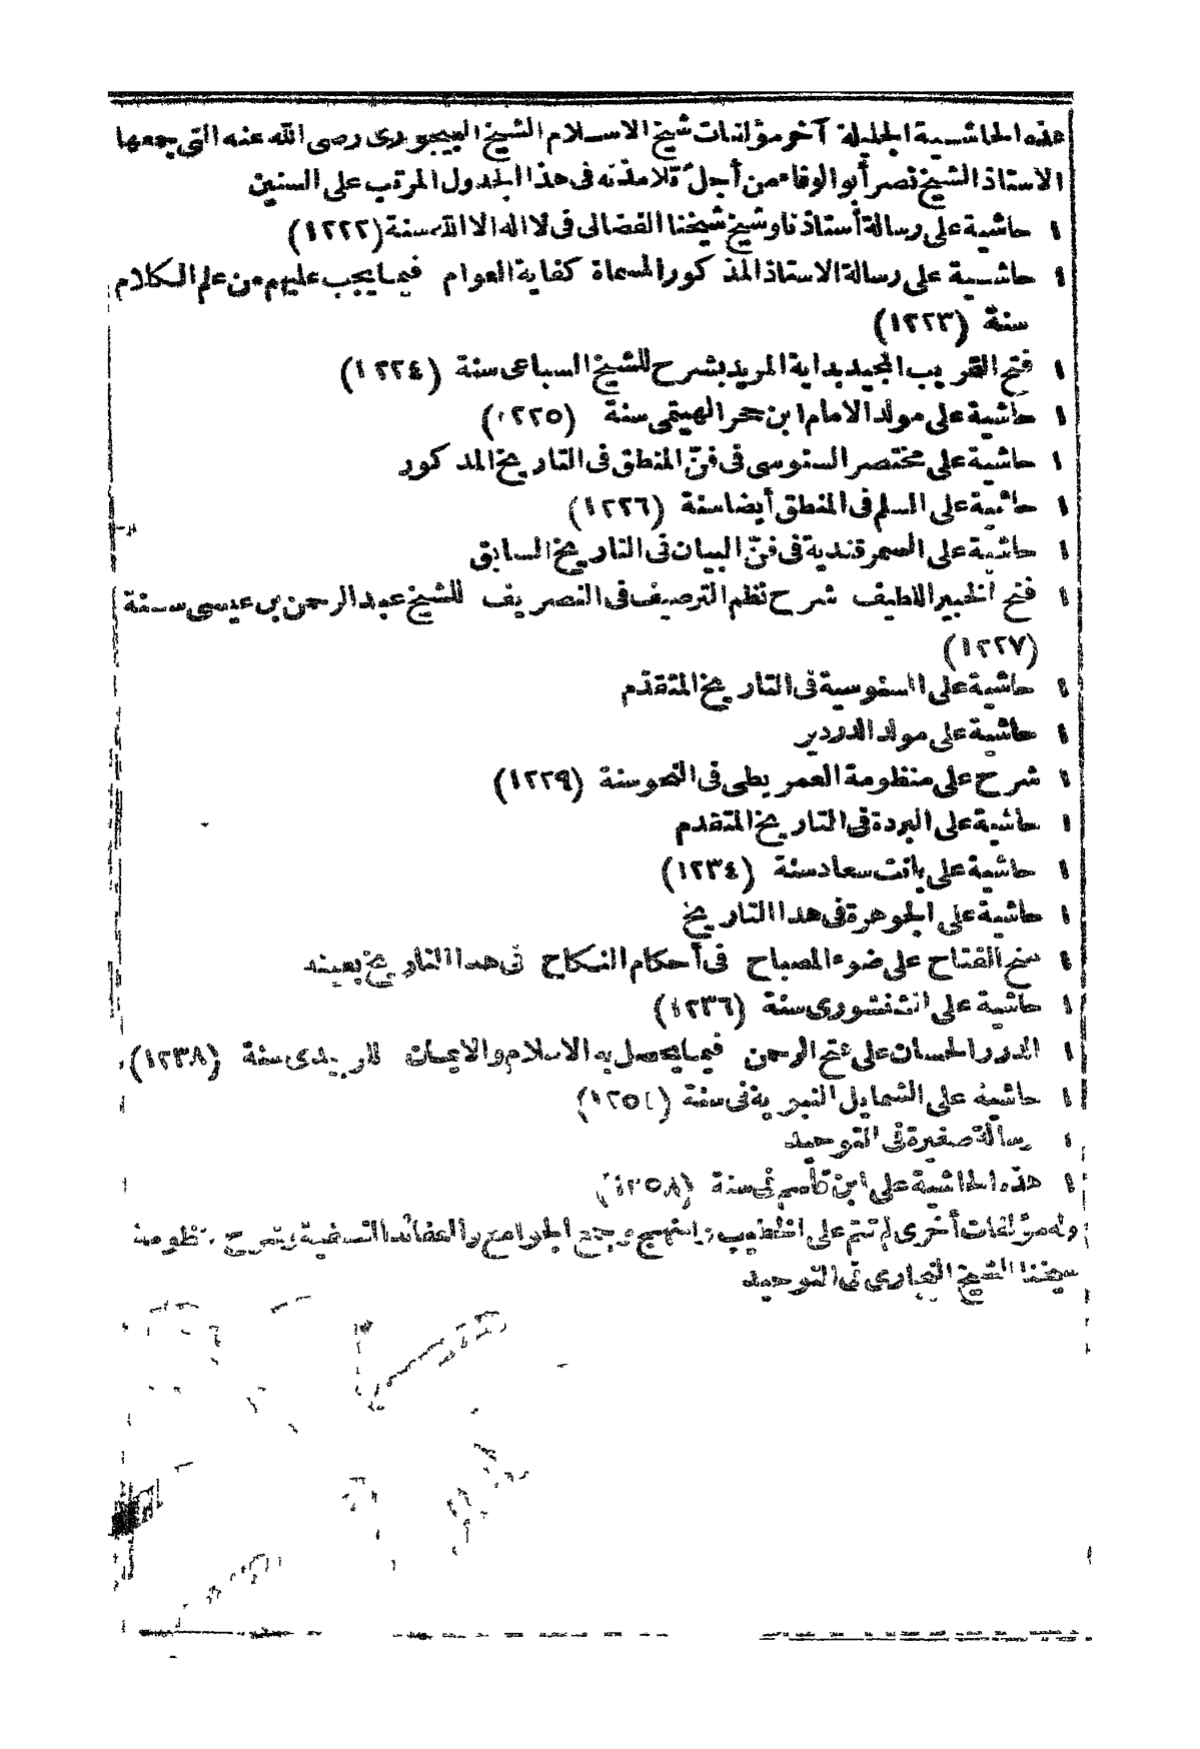 هذه الحاشية الجليلة آخر مؤلفات شيخ الاسلام الشيخ البيجورى رضى الله عنه التى جمعها
الاستاذ الشيخ نصر أبو الوفاء من أجلّ تلامذته فى هذا الجدول المرتب على السنين
١ حاشية على رسالة أستاذنا وشيخ شيخنا الفضالى فى لا اله الا الله سنة (١٢٢٢)
١ حاشية على رسالة الاستاذ المذكور المسماة كفاية العوام فيما يجب عليهم من علم الكلام
سنة (١٢٢٣)
١ فتح القريب المجيد بداية المريد بشرح للشيخ السباعى سنة (١٢٢٤)
١ حاشية على مولد الامام ابن حجر الهيتمى سنة (١٢٢٥)
١ حاشية على مختصر السنوسى فى فنّ المنطق فى التاريخ المذكور
١ حاشية على السلم فى المنطق أيضا سنة (١٢٢٦)
١ حاشية على السمرقندية فى فنّ البيان فى التاريخ السابق
١ فتح الخبير اللطيف شرح نظم الترصيف فى التصريف للشيخ عبد الرحمن بن عيسى سنة
(١٢٢٧)
١ حاشية على السنوسية فى التاريخ المتقدّم
١ حاشية على مولد الدردير
١ شرح على منظومة العمريطى فى النحو سنة (١٢٢٩)
١ حاشية على البردة فى التاريخ المتقدم
١ حاشية على بانت سعاد سنة (١٢٣٤)
١ حاشية على الجوهرة فى هذا التاريخ
١ منح الفتاح على ضوء المصباح فى أحكام النكاح فى هذا التاريخ بعينه
١ حاشية على الشنشورى سنة (١٢٣٦)
١ الدرر الحسان على فتح الرحمن فيما يحصل به الاسلام والايمان للزبيدى سنة (١٢٣٨)
١ حاشية على الشمايل النبوية فى سنة (١٢٥١)
١ رسالة صغيرة فى التوحيد
١ هذه الحاشية على ابن قاسم فى سنة (١٢٥٨)
وله مؤلفات أخرى لم تتم على الخطيب والمنهج وجمع الجوامع والعقائد النسفية وشرح منظومة
شيخنا الشيخ البخارى فى التوحيد